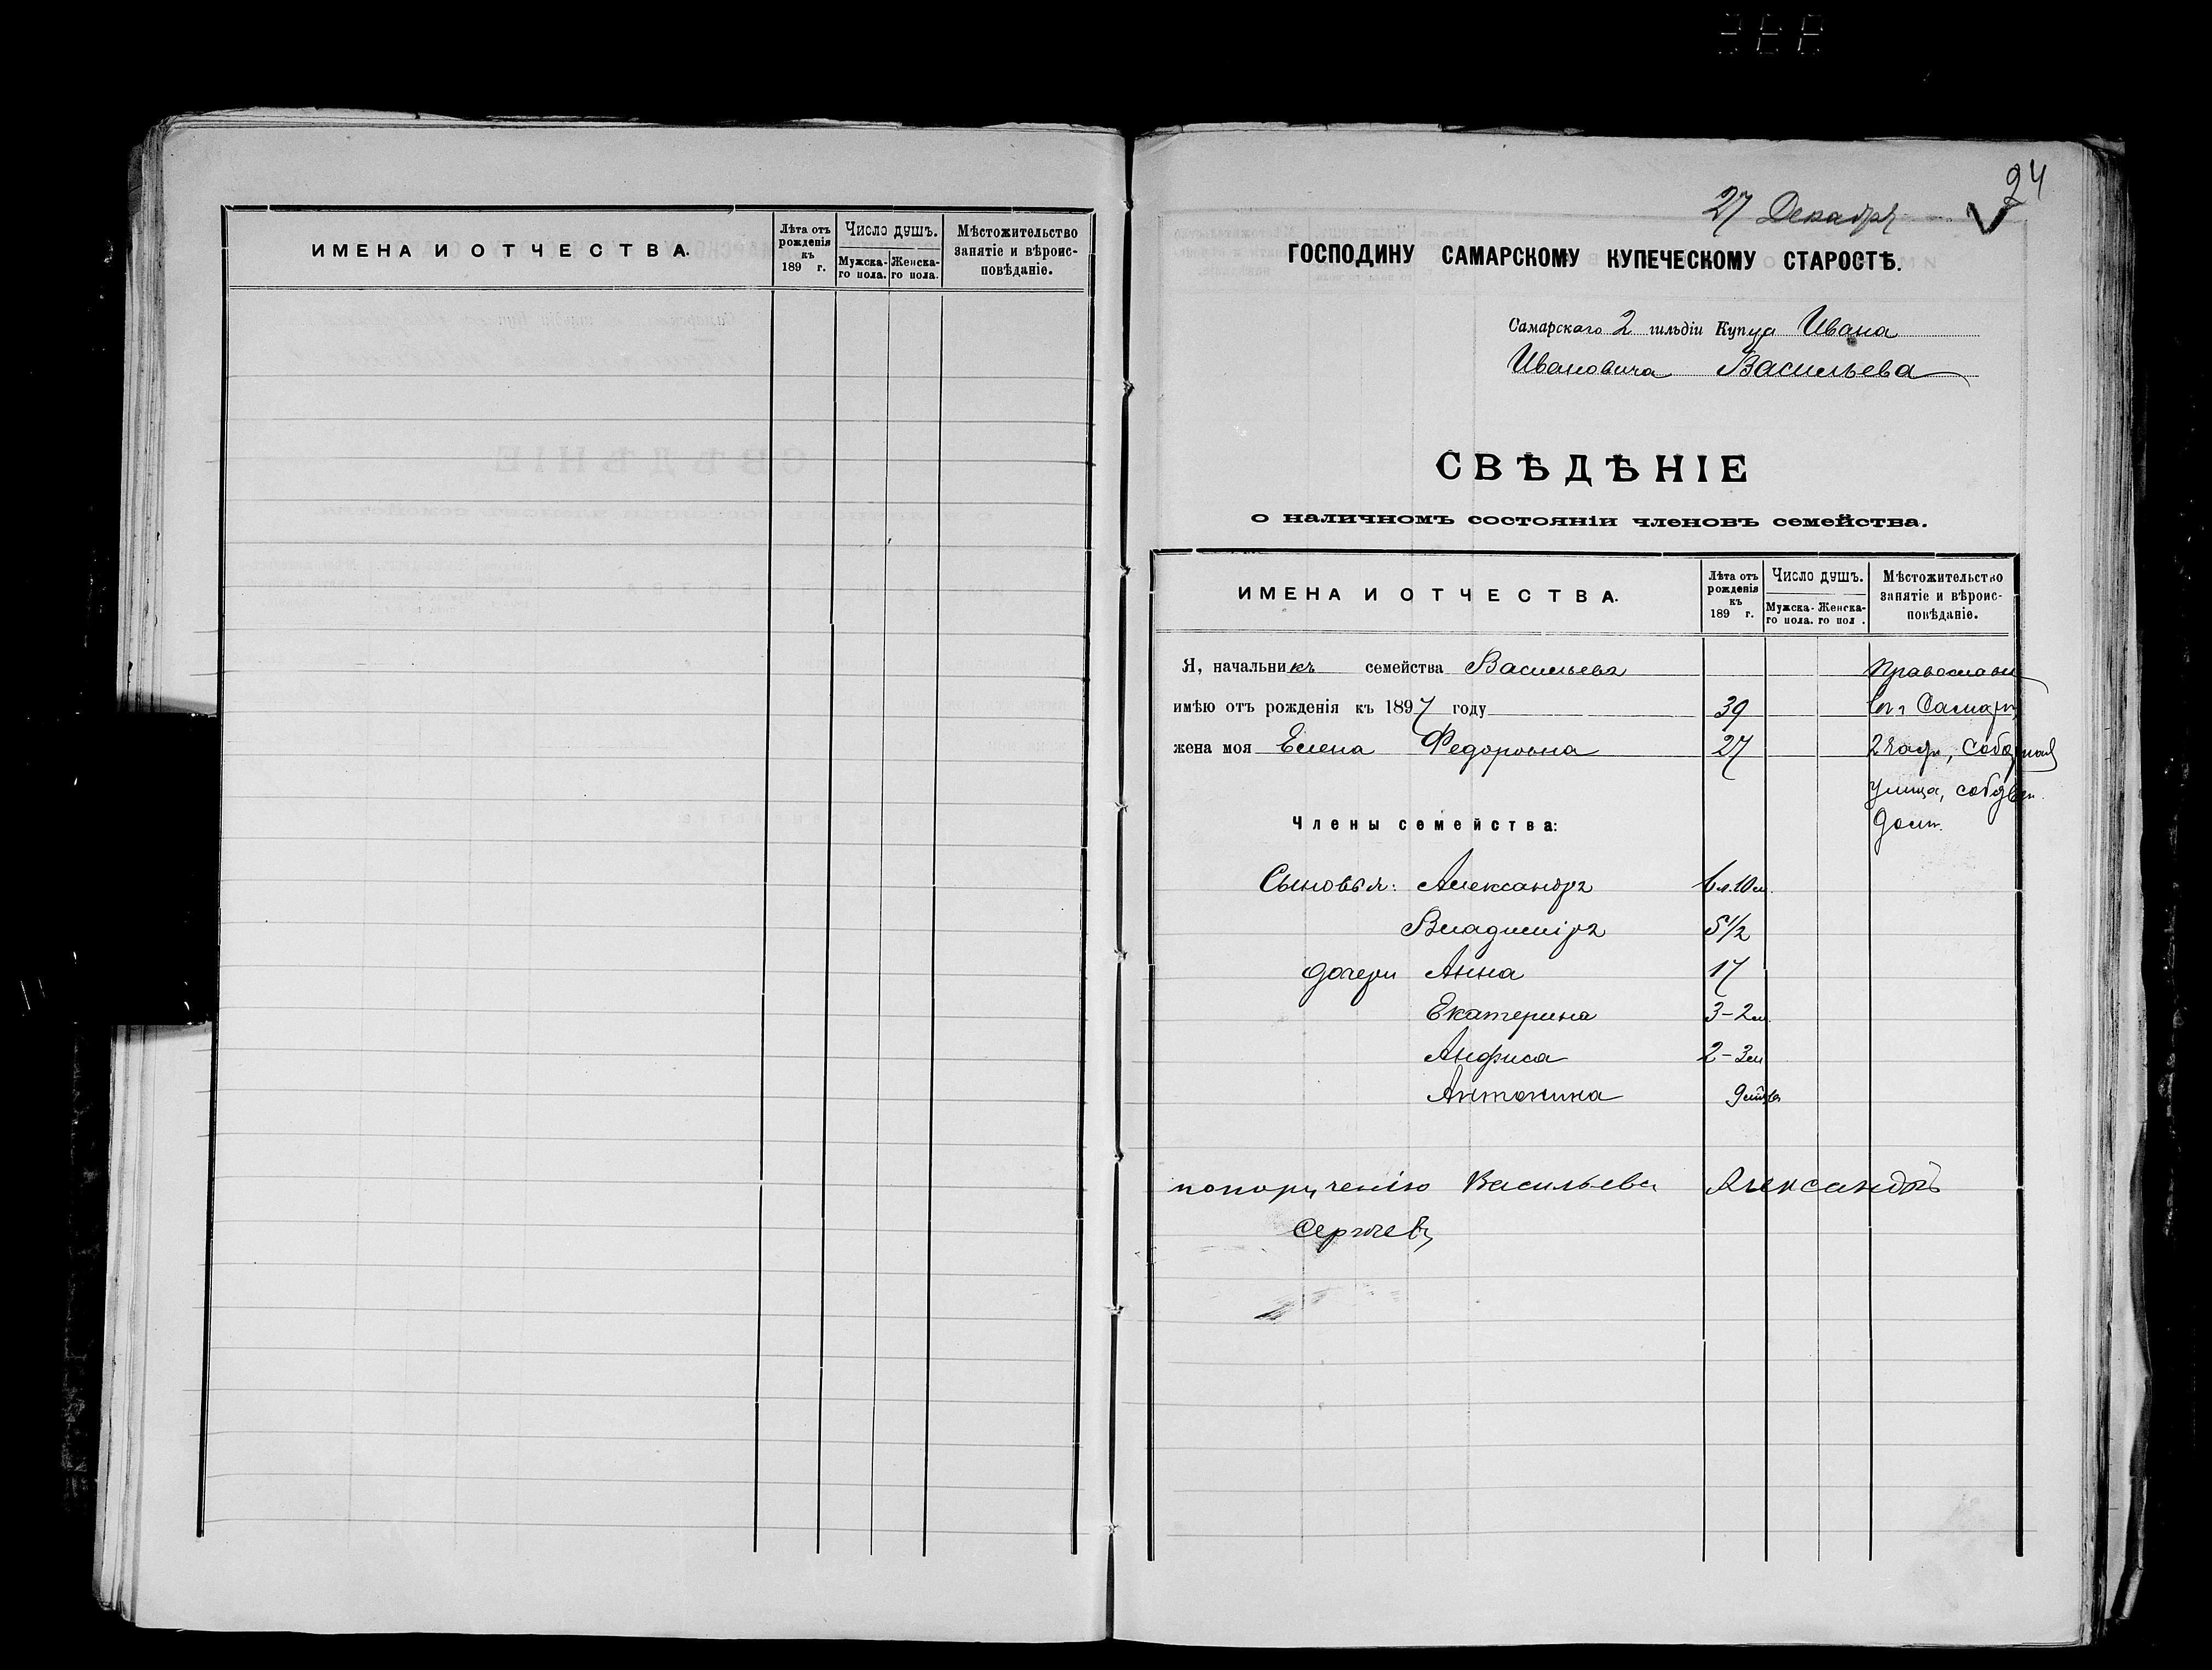 ИМЕНА И ОТЧЕСТВА.
Лѣта отъ рожденія къ 189 г.
Число душъ.
Мужска-го пола.
Женска-го пола.
Мѣстожительство занятіе и вѣроис-повѣданіе.
24
27 Декабря
ГОСПОДИНУ САМАРСКОМУ КУПЕЧЕСКОМУ СТАРОСТѢ.
Самарскаго 2 гильдіи Купца Ивана
Ивановича Васильева
СВѢДѢНІЕ
о наличномъ состояніи членовъ семейства.
ИМЕНА И ОТЧЕСТВА.
Лѣта отъ рожденія къ 189 г.
Число душъ.
Мужска-го пола.
Женска-го пол .
Мѣстожительство занятіе и вѣроис-повѣданіе.
Я, начальникъ семейства Васильевъ
имѣю отъ рожденія къ 1897 году 39 Самарѣ,
жена моя Елена Федоровна 27 2 части, Соборная
улица, собствен.
Члены семейства: домъ.
Сыновья: Александръ 6 л. 10 м.
Владиміръ 5 1/2
дочери Анна 17
Екатерина 3 - 2 м.
Анфиса 2 - 3 м
Антонина
попорученію Васильева Александръ
Сергѣевъ